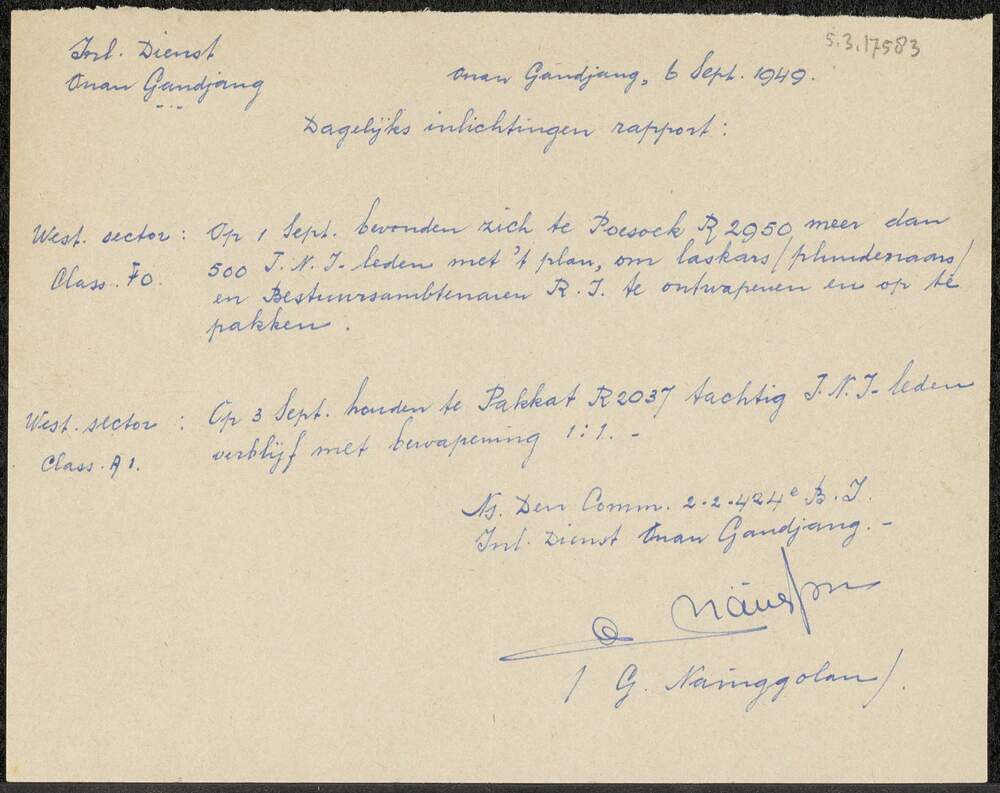 5.3.17583
Inl. Dienst
Onan Gandjang
Onan Gandjang, 6 Sept. 1949.
Dagelijks inlichtingen rapport:
West. sector: Op 1 Sept. bevonden zich te Poesock R 2950 meer dan
Class. F0. 500 T.N.I-leden met 't plan, om laskars/plunderaars/
en Bestuursambtenaren R.I. te ontwapenen en op te
pakken.
West. sector: Op 3 Sept. houden te Pakkat R2037 tachtig T.N.I-leden
Class. A1. verblijf met bewapening 1:1.-
Ns. Den Comm. 2-2-424e B.I.
Inl. Dienst Onan Gandjang.-
/ G. Nainggolan /.